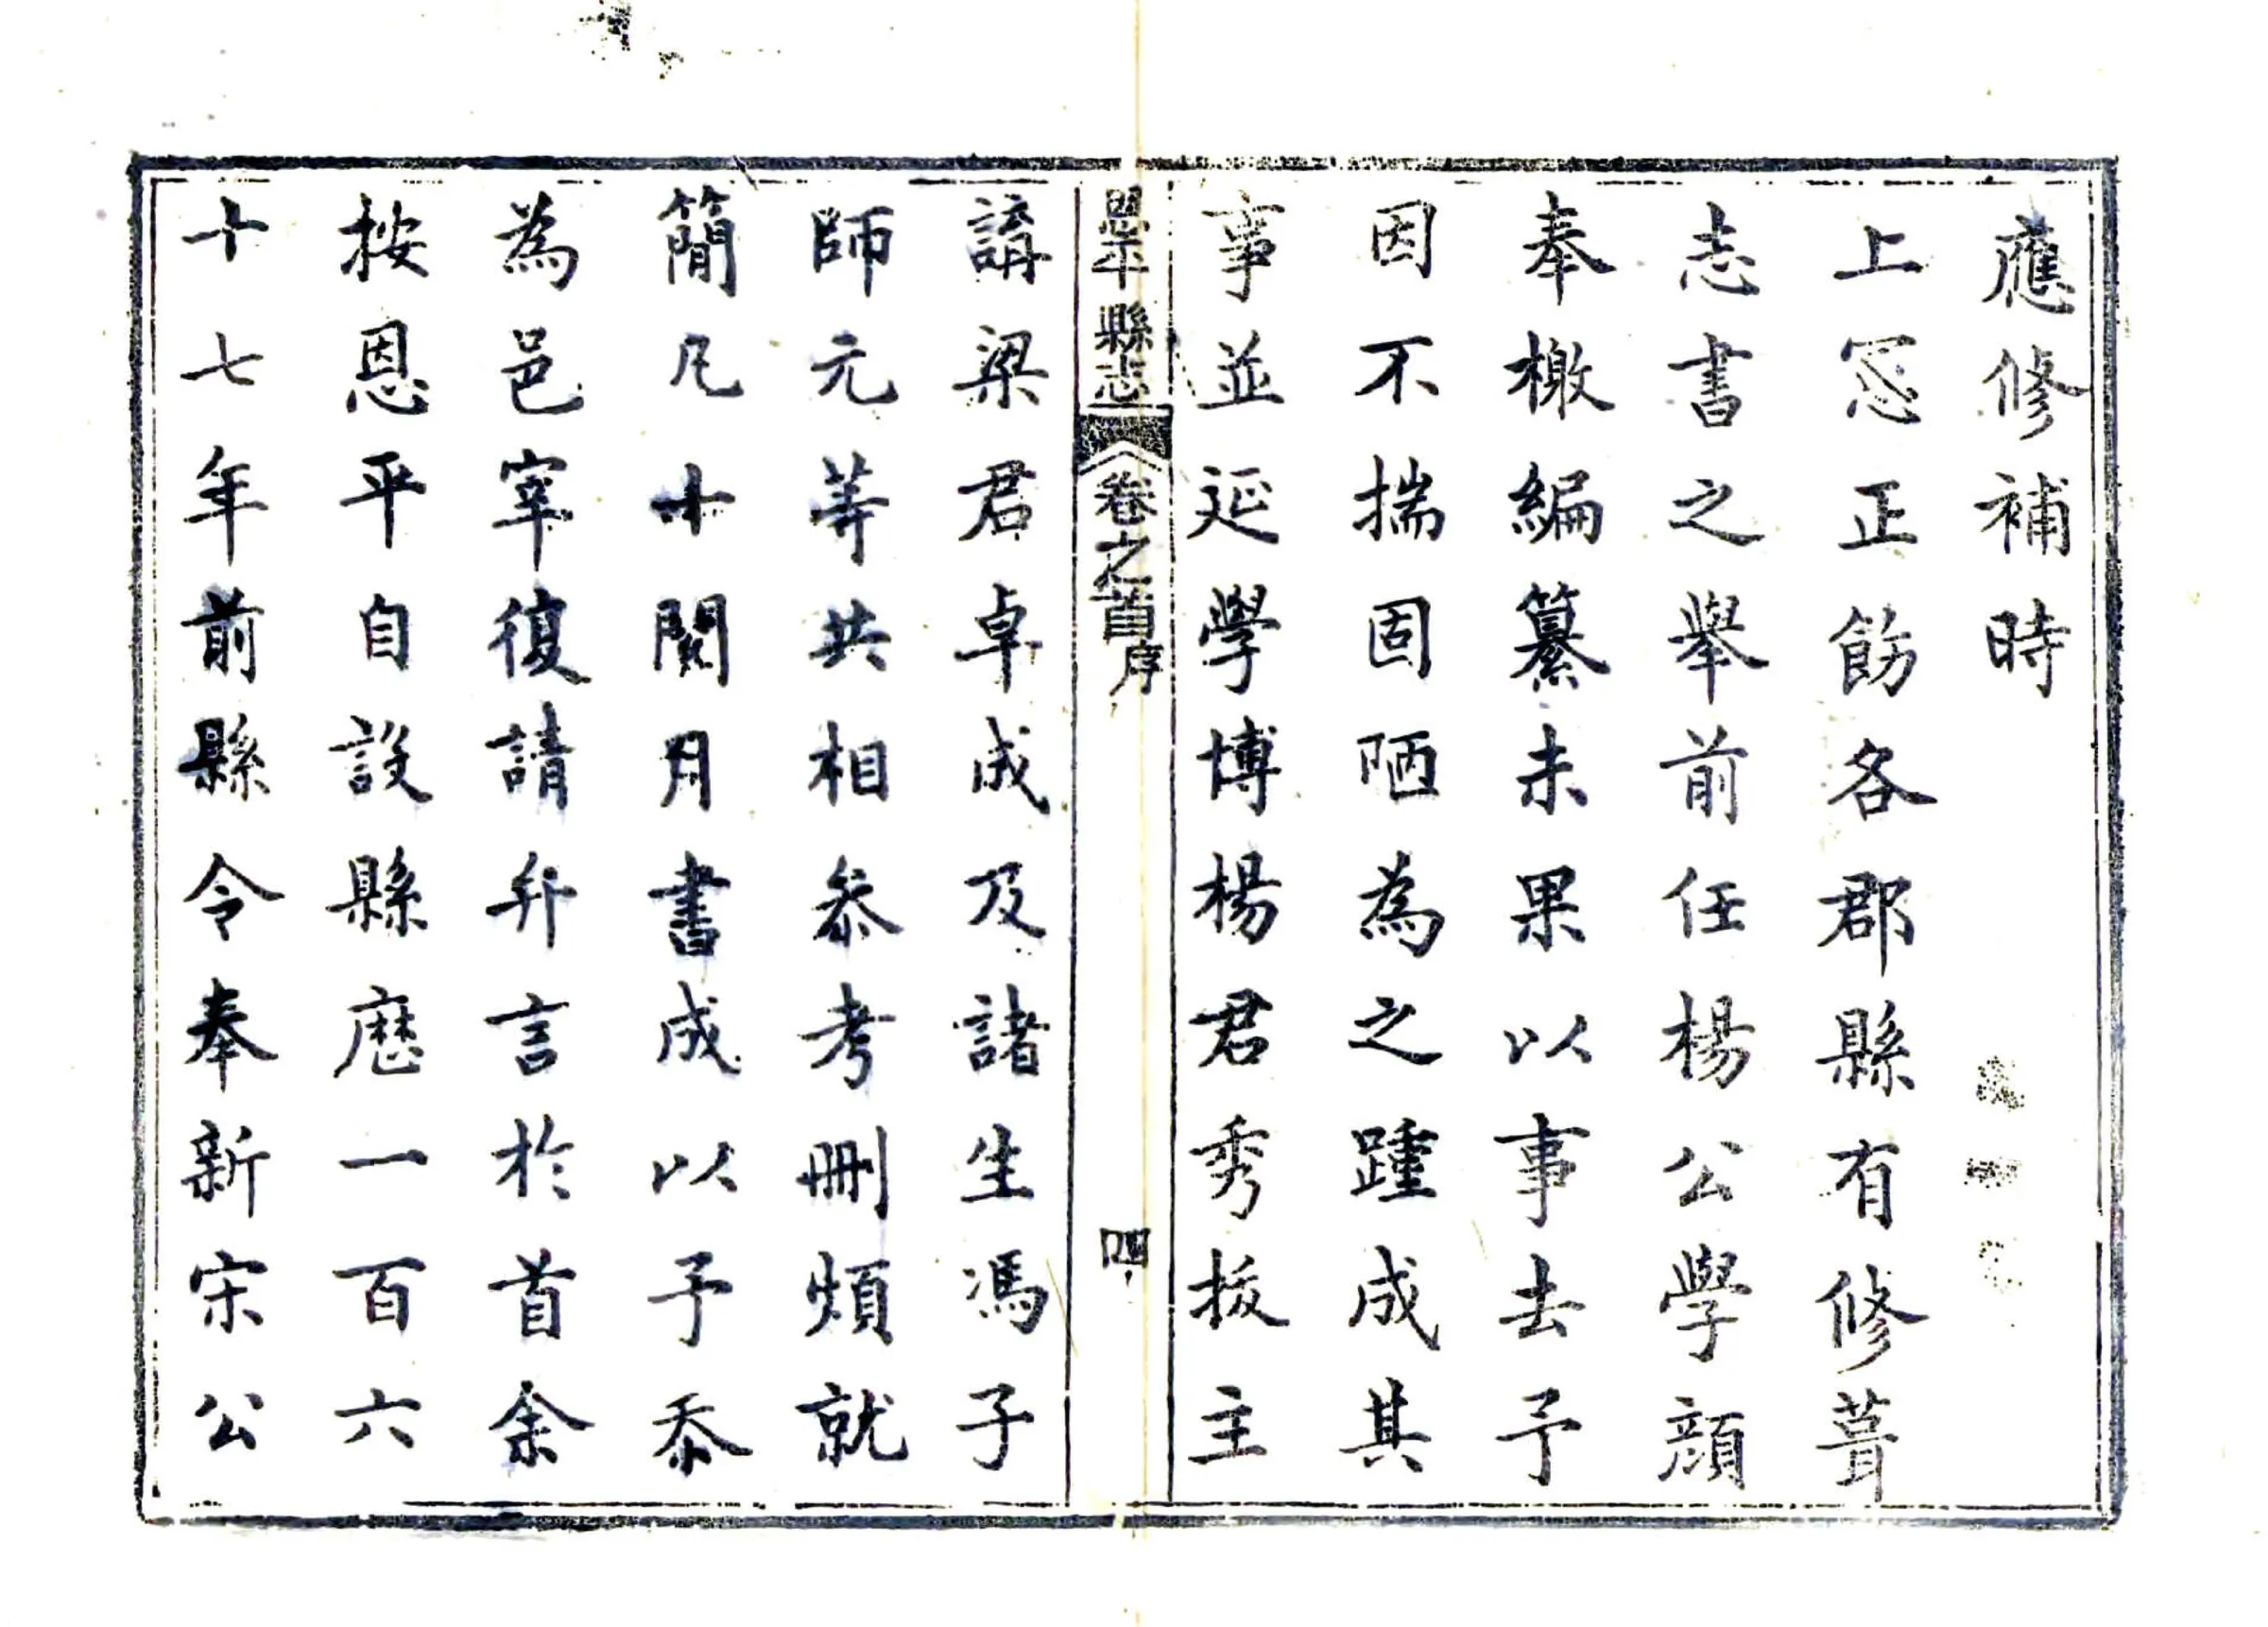 應修補時
上窓正飭各郡縣有修葺
志書之舉前任楊公學顔
奉檄編纂未果以事去予
因不揣固陋為之踵成其
事並延學博楊君秀拔主
恩平縣志 卷之首 序 四
講梁君卓成及諸生馮子
師元等共相叅考刪煩就
簡凡十閱月書成以予忝
為邑宰復請弁言於首余
按恩平自設縣歷一百六
十七年前縣令奉新宋公